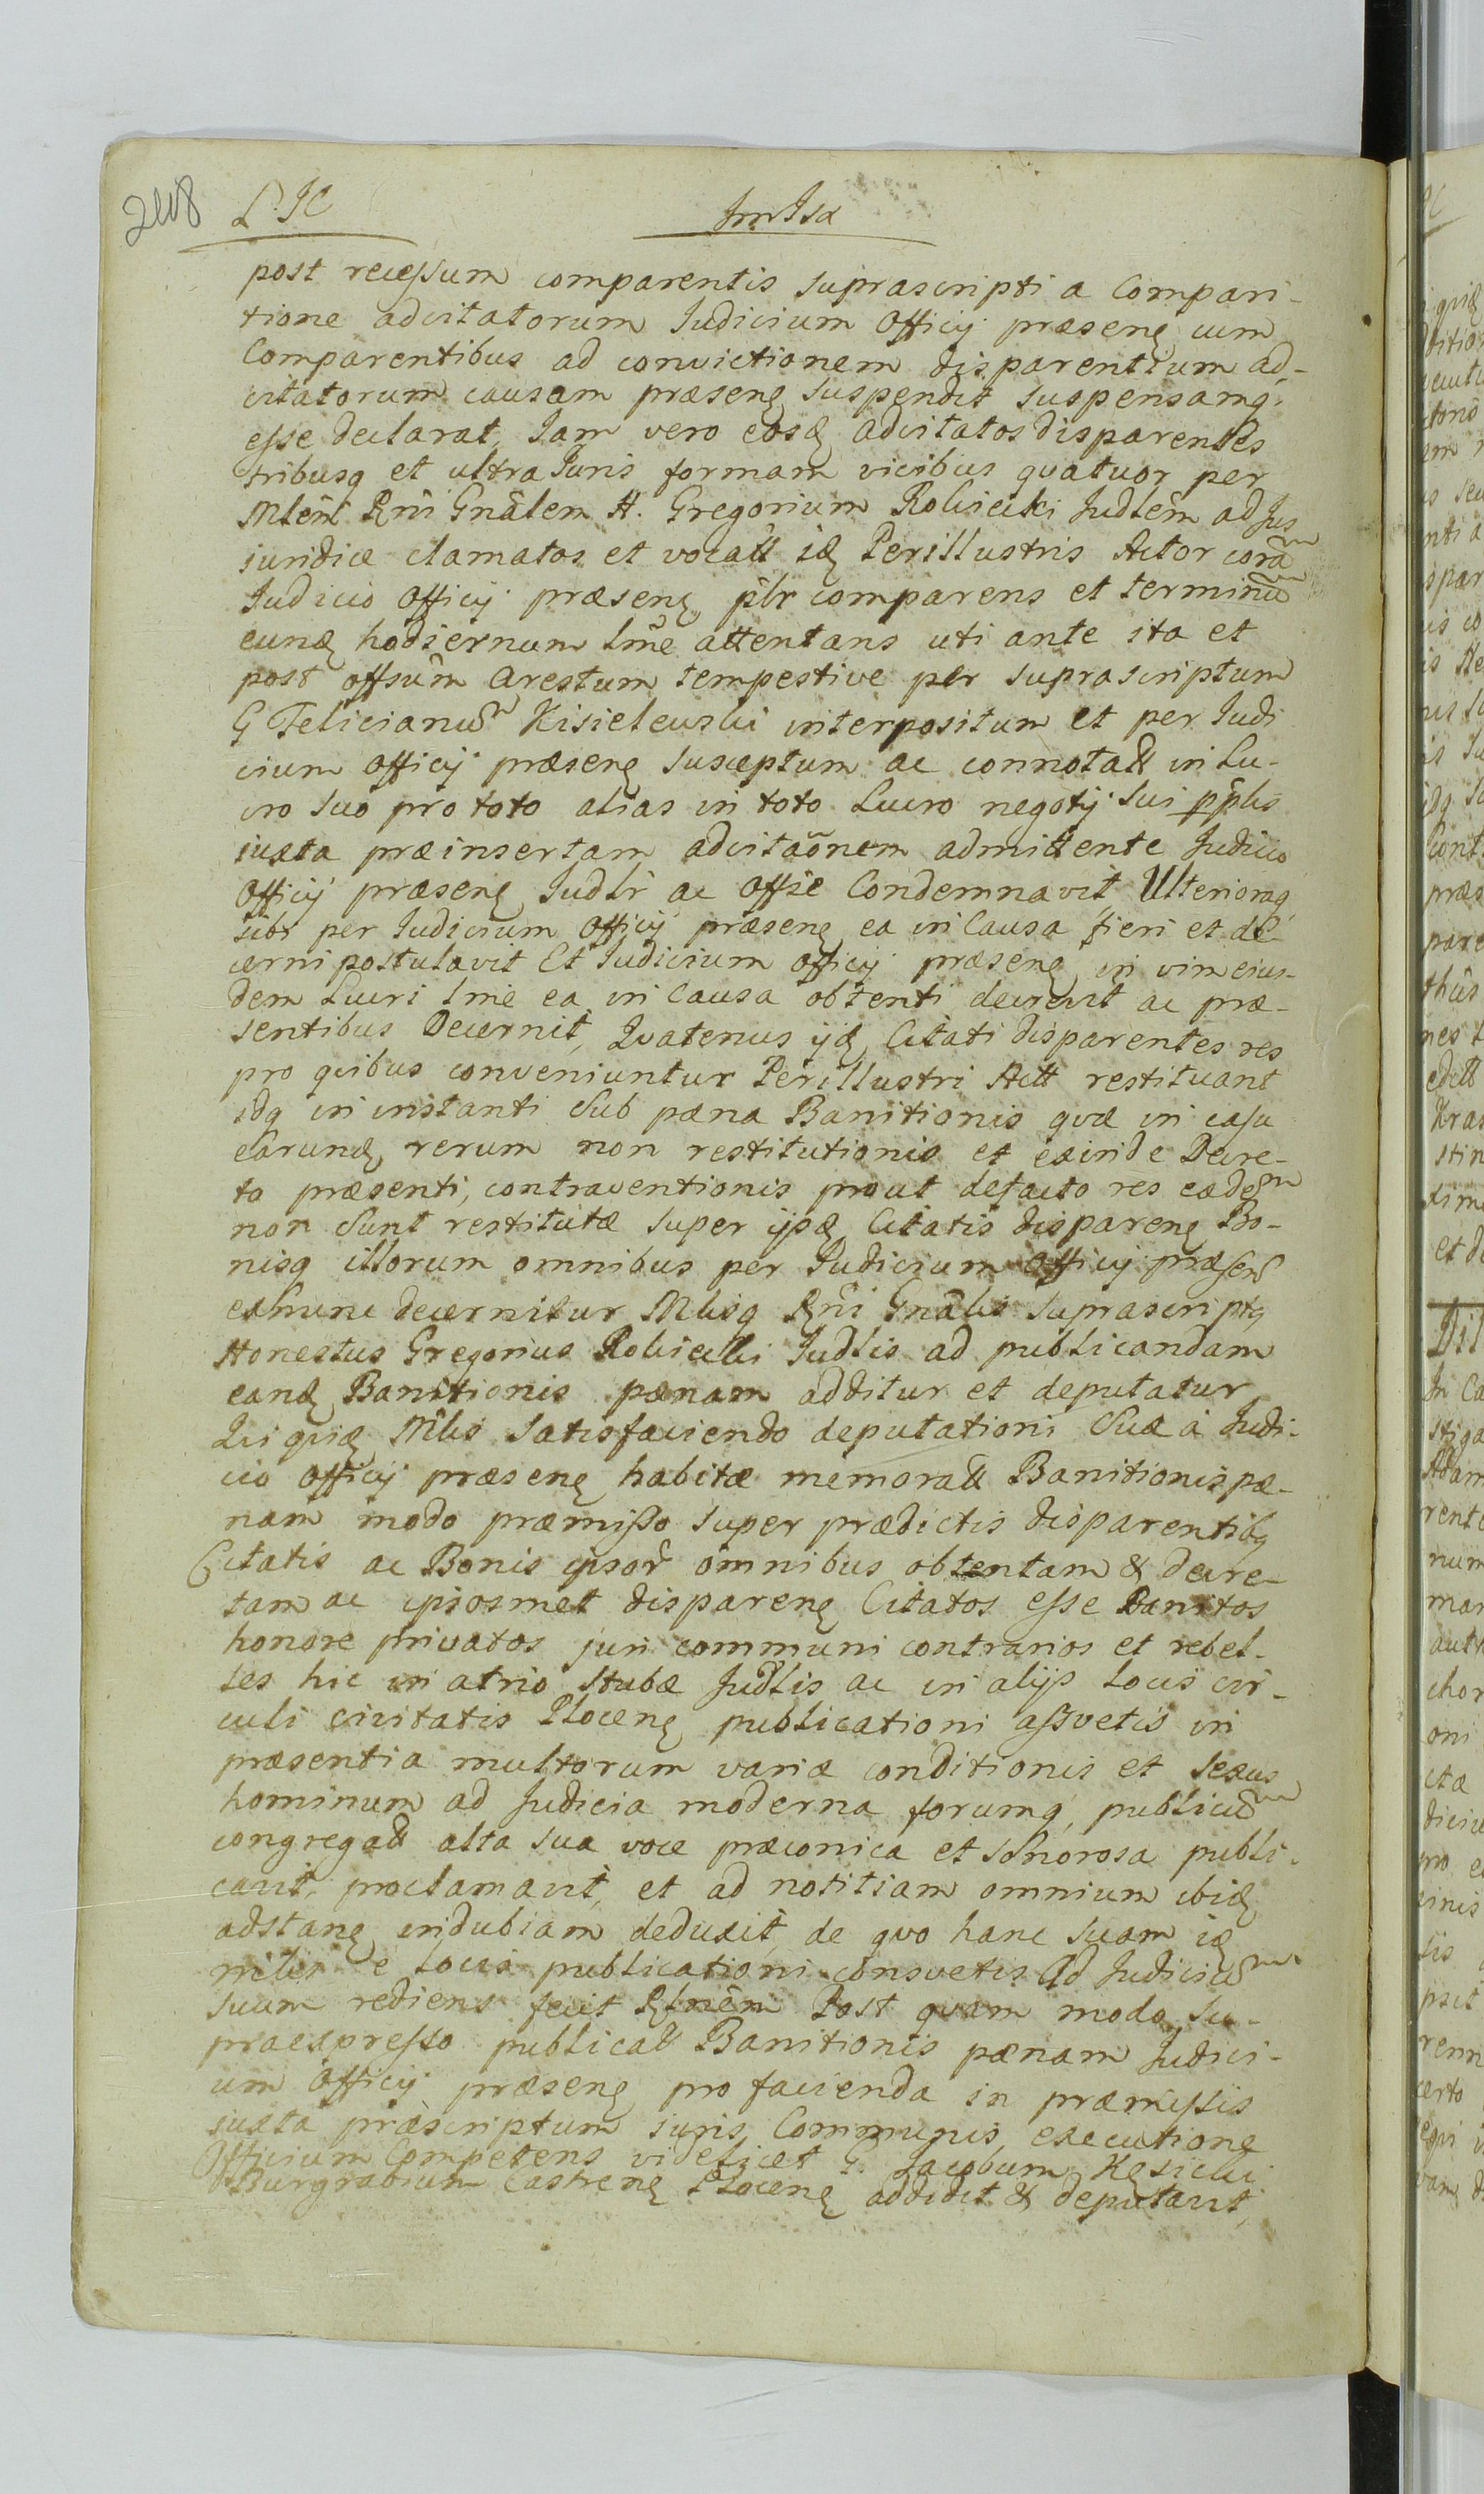 248 L. JC
post recessum comparentis suprascripti a Compari-
tione adcitatorum Judicium Officij præseng cum
Comparentibus ad convictionem disparentium ad-
citatorum causam præseng suspendit suspensamq,
esse declarat, Jam vero eosq adcitatos disparentes
tribusq et ultra Juris formam vicibus quatuor per
Mlem Rni Gnâlem H. Gregorium Robicki Judlem ad Jus
juridice clamatos et vocatt iq Perillustris Actor coram
Judicio Officij præseng plr comparens et terminum
eunq hodiernum lme attentans uti ante ita et
post offsum Arestum tempestive per suprascriptum
G Felicianum Kisielewski interpositum et per Judi
cium Officij præseng susceptum ac connotatt in Lu-
cro suo pro toto alias in toto Lucro negotij sui pplis
iuxta præinsertam adcitaonem admittente Judicio
Officij præseng Judlr ac Offse Condemnavit, Ulterioraq
sibi per Judicium Officij præseng ea in Causa fieri et de-
cerni postulavit Et Judicium Officij præseng in vim eius-
dem Lucri lme ea in Causa obtenti decrevit ac præ-
sentibus Decernit, Quatenus ijq Citati disparentes res
pro quibus conveniuntur Perillustri Actt restituant
idq in instanti Sub pæna Banitionis quæ in casu
earunq rerum non restitutionis et exinde Decre-
to præsenti, contraventionis prout defacto res eædem
non sunt restitutæ super ijsq Citatis dispareng Bo-
nisq illorum omnibus per Judicium Officij præsens
exhunc decernitur Mlisq Rni Gnâlis Supraseriptq
Honestus Gregorius Robicki Judlis ad publicandam
eanq Banitionis pænam additur et deputatur
Qui quiq Mlis satisfaciendo deputationi Suæ à Judi-
cio Officij præseng habitæ memoratt Banitionis pæ-
nam modo præmisso super prædictis disparentibq
Citatis ac Bonis ipsor omnibus obtentam & decre-
tam ac ipsosmet dispareng Citatos esse Banitos
honore privatos juri communi contrarios et rebel-
les hic in atrio stubæ Judlis ac in alijs locis cir-
culi civitatis Ploceng publicationi assvetis in
præsentia multorum variæ conditionis et sexus
hominum ad Judicia moderna forumq, publicum
congregatt alta sua voce præconica et sonorosa publi-
cavit, proclamavit, et ad notitiam omnium ibiq
adstang indubiam deduxit, de quo hanc suam iq
mlis e locis publicationi consvetis Ad Judicium
suum rediens fecit Rlnêm Post quam modo su-
praexpresso publicatt Banitionis pænam Judici-
um Officij præseng pro facienda in præmissis
iuxta præscriptum juris Communis executione
Officium Competens videlicet G. Jacobum Kęsicki
Burgrabium Castreng Ploceng addidit & deputavit,